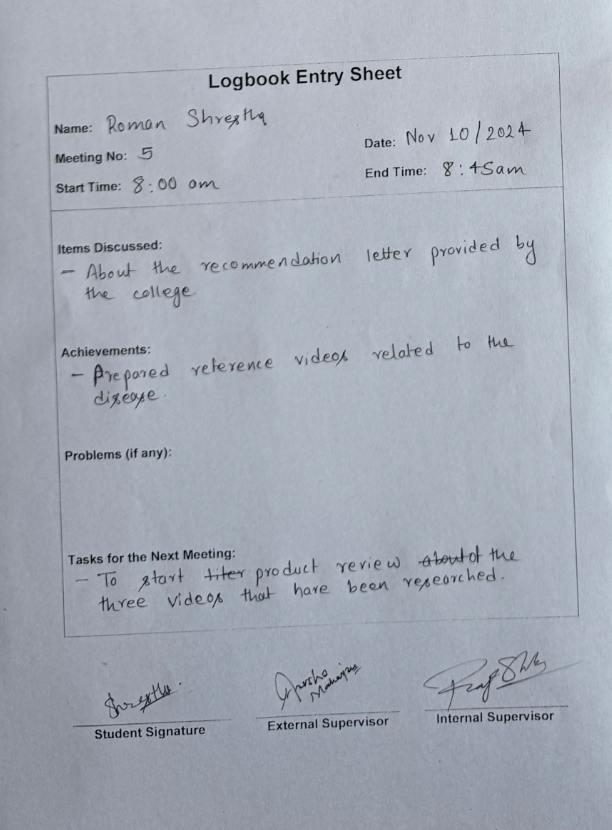 Logbook Entry Sheet
Name: Roman Shrestha
Date: Nov 10/2024
Meeting No: 5
End Time: 8:45am
Start Time: 8:00 am
Items Discussed:
- About the recommendation letter provided by
the college
Achievements:
- Prepared reference videos related to the
disease.
Problems (if any):
Tasks for the Next Meeting:
- To start product review of the
three videos that have been researched.
Shrestha.
Maharjan
Student Signature
External Supervisor
Internal Supervisor